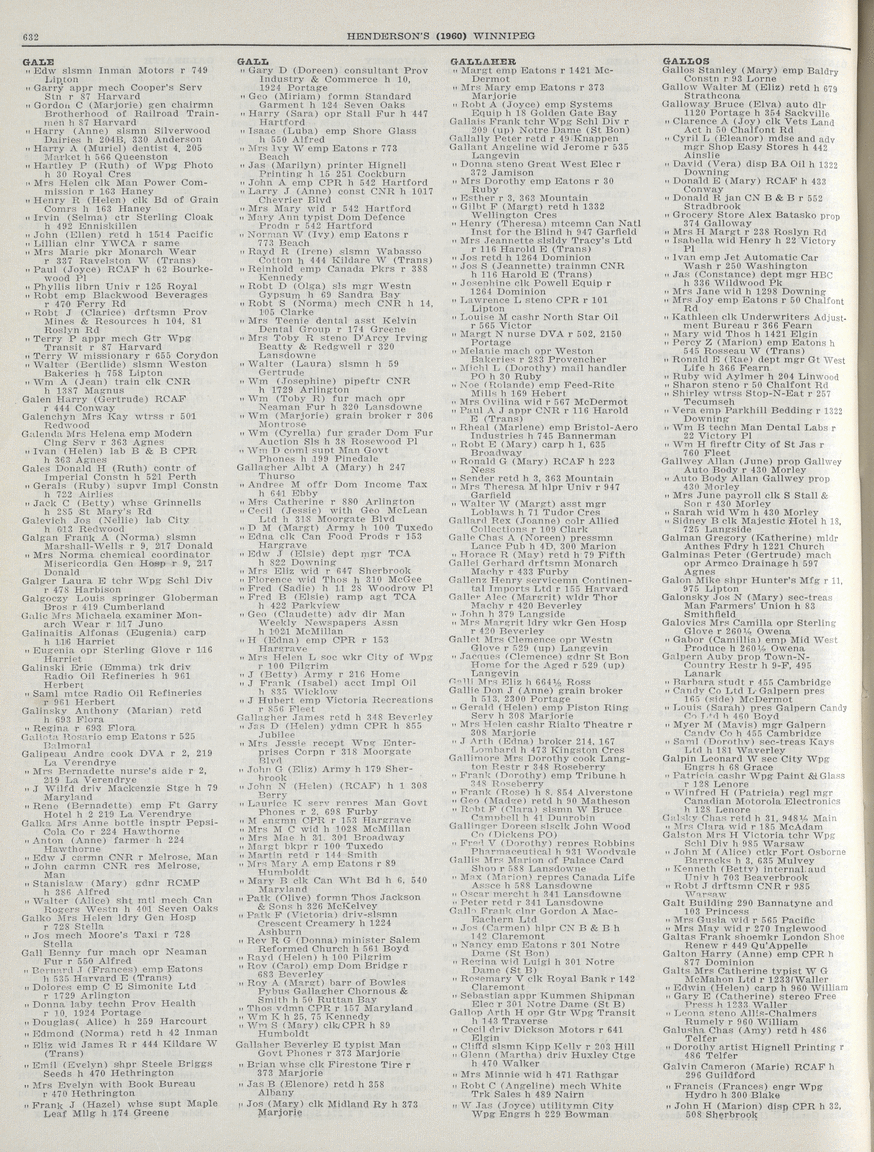 632
HENDERSON'S (1960) WINNIPEG
GALE
" Edw slsmn Inman Motors r 749
Lipton
" Garry appr mech Cooper's Serv
Stn r 87 Harvard
" Gordon C (Marjorie) gen chairmn
Brotherhood of Railroad Train-
men h 87 Harvard
" Harry (Anne) slsmn Silverwood
Dairies h 204B, 330 Anderson
" Harry A (Muriel) dentist 4, 205
Market h 566 Queenston
" Hartley P (Ruth) of Wpg Photo
h 30 Royal Cres
" Mrs Helen clk Man Power Com-
mission r 163 Haney
" Henry R (Helen) clk Bd of Grain
Comrs h 163 Haney
" Irvin (Selma) ctr Sterling Cloak
h 492 Enniskillen
" John (Ellen) retd h 1514 Pacific
" Lillian clnr YWCA r same
" Mrs Marie pkr Monarch Wear
r 337 Ravelston W (Trans)
" Paul (Joyce) RCAF h 62 Bourke-
wood Pl
" Phyllis librn Univ r 125 Royal
" Robt emp Blackwood Beverages
r 470 Ferry Rd
" Robt J (Clarice) drftsmn Prov
Mines & Resources h 104, 81
Roslyn Rd
" Terry P appr mech Gtr Wpg
Transit r 87 Harvard
" Terry W missionary r 655 Corydon
" Walter (Bertilde) slsmn Weston
Bakeries h 758 Lipton
" Wm A (Jean) train clk CNR
h 1387 Magnus
Galen Harry (Gertrude) RCAF
r 444 Conway
Galenchyn Mrs Kay wtrss r 501
Redwood
Galenda Mrs Helena emp Modern
Clng Serv r 363 Agnes
" Ivan (Helen) lab B & B CPR
h 363 Agnes
Gales Donald H (Ruth) contr of
Imperial Constn h 521 Perth
" Gerals (Ruby) supvr Impl Constn
h 722 Airlies
" Jack C (Betty) whse Grinnells
h 285 St Mary's Rd
Galevich Jos (Nellie) lab City
h 613 Redwood
Galgan Frank A (Norma) slsmn
Marshall-Wells r 9, 217 Donald
" Mrs Norma chemical coordinator
Misericordia Gen Hosp r 9, 217
Donald
Galger Laura E tchr Wpg Schl Div
r 478 Harbison
Galgoczy Louis springer Globerman
Bros r 419 Cumberland
Galic Mrs Michaela examiner Mon-
arch Wear r 117 Juno
Galinaitis Alfonsas (Eugenia) carp
h 116 Harriet
" Eugenia opr Sterling Glove r 116
Harriet
Galinski Eric (Emma) trk driv
Radio Oil Refineries h 961
Herbert
" Saml mtce Radio Oil Refineries
r 961 Herbert
Galinsky Anthony (Marian) retd
h 693 Flora
" Regina r 693 Flora
Galiota Rosario emp Eatons r 525
Balmoral
Galipeau Andre cook DVA r 2, 219
La Verendrye
" Mrs Bernadette nurse's aide r 2,
219 La Verendrye
" J Wilfd driv Mackenzie Stge h 79
Maryland
" Reno (Bernadette) emp Ft Garry
Hotel h 2 219 La Verendrye
Galka Mrs Anne bottle insptr Pepsi-
Cola Co r 224 Hawthorne
" Anton (Anne) farmer h 224
Hawthorne
" Edw J carmn CNR r Melrose, Man
" John carmn CNR res Melrose,
Man
" Stanislaw (Mary) gdnr RCMP
h 386 Alfred
" Walter (Alice) sht mtl mech Can
Rogers Westn h 401 Seven Oaks
Galko Mrs Helen ldry Gen Hosp
r 728 Stella
" Jos mech Moore's Taxi r 728
Stella
Gall Benny fur mach opr Neaman
Fur r 550 Alfred
" Bernard J (Frances) emp Eatons
h 535 Harvard E (Trans)
" Dolores emp C E Simonite Ltd
r 1729 Arlington
" Donna laby techn Prov Health
r 10, 1924 Portage
" Douglas( Alice) h 259 Harcourt
" Edmond (Norma) retd h 42 Inman
" Eliz wid James R r 444 Kildare W
(Trans)
" Emil (Evelyn) shpr Steele Briggs
Seeds h 470 Hethrington
" Mrs Evelyn with Book Bureau
r 470 Hethrington
" Frank J (Hazel) whse supt Maple
Leaf Mllg h 174 Greene
GALL
" Gary D (Doreen) consultant Prov
Industry & Commerce h 10,
1924 Portage
" Geo (Miriam) formn Standard
Garment h 124 Seven Oaks
" Harry (Sara) opr Stall Fur h 447
Hartford
" Isaac (Luba) emp Shore Glass
h 550 Alfred
" Mrs Ivy W emp Eatons r 773
Beach
" Jas (Marilyn) printer Hignell
Printing h 15 251 Cockburn
" John A emp CPR h 542 Hartford
" Larry J (Anne) const CNR h 1017
Chevrier Blvd
" Mrs Mary wid r 542 Hartford
" Mary Ann typist Dom Defence
Prodn r 542 Hartford
" Norman W (Ivy) emp Eatons r
773 Beach
" Rayd R (Irene) slsmn Wabasso
Cotton h 444 Kildare W (Trans)
" Reinhold emp Canada Pkrs r 388
Kennedy
" Robt D (Olga) sls mgr Westn
Gypsum h 69 Sandra Bay
" Robt S (Norma) mech CNR h 14,
105 Clarke
" Mrs Teenie dental asst Kelvin
Dental Group r 174 Greene
" Mrs Toby R steno D'Arcy Irving
Beatty & Redgwell r 320
Lansdowne
" Walter (Laura) slsmn h 59
Gertrude
" Wm (Josephine) pipeftr CNR
h 1729 Arlington
" Wm (Toby R) fur mach opr
Neaman Fur h 320 Lansdowne
" Wm (Marjorie) grain broker r 306
Montrose
" Wm (Cyrella) fur grader Dom Fur
Auction Sls h 38 Rosewood Pl
" Wm D coml supt Man Govt
Phones h 199 Pinedale
Gallagher Albt A (Mary) h 247
Thurso
" Andree M offr Dom Income Tax
h 641 Ebby
" Mrs Catherine r 880 Arlington
" Cecil (Jessie) with Geo McLean
Ltd h 318 Moorgate Blvd
" D M (Margt) Army h 100 Tuxedo
" Edna clk Can Food Prods r 153
Hargrave
" Edw J (Elsie) dept mgr TCA
h 822 Downing
" Mrs Eliz wid r 647 Sherbrook
" Florence wid Thos h 310 McGee
" Fred (Sadie) h 11 28 Woodrow Pl
" Fred B (Elsie) ramp agt TCA
h 422 Parkview
" Geo (Claudette) adv dir Man
Weekly Newspapers Assn
h 1021 McMillan
" H (Edna) emp CPR r 153
Hargrave
" Mrs Helen L soc wkr City of Wpg
r 100 Pilgrim
" J (Betty) Army r 216 Home
" J Frank (Isabel) acct Impl Oil
h 835 Wicklow
" J Hubert emp Victoria Recreations
r 856 Fleet
Gallagher James retd h 348 Beverley
" Jas D (Helen) ydmn CPR h 855
Jubilee
" Mrs Jessie recept Wpg Enter-
prises Corpn r 318 Moorgate
Blvd
" John G (Eliz) Army h 179 Sher-
brook
" John N (Helen) (RCAF) h 1 308
Berry
" Laurice K serv repres Man Govt
Phones r 2, 698 Furby
" M engmn CPR r 153 Hargrave
" Mrs M C wid h 1028 McMillan
" Mrs Mae h 31, 301 Broadway
" Margt bkpr r 100 Tuxedo
" Martin retd r 144 Smith
" Mrs Mary A emp Eatons r 89
Humboldt
" Mary B clk Can Wht Bd h 6, 540
Maryland
" Patk (Olive) formn Thos Jackson
& Sons h 326 McKelvey
" Patk F (Victoria) driv-slsmn
Crescent Creamery h 1224
Ashburn
" Rev R G (Donna) minister Salem
Reformed Church h 561 Boyd
" Rayd (Helen) h 100 Pilgrim
" Roy (Carol) emp Dom Bridge r
683 Beverley
" Roy A (Margt) barr of Bowles
Pybus Gallagher Chornous &
Smith h 50 Ruttan Bay
" Thos ydmn CPR r 157 Maryland
" Wm K h 25, 75 Kennedy
" Wm S (Mary) clk CPR h 89
Humboldt
Gallaher Beverley E typist Man
Govt Phones r 373 Marjorie
" Brian whse clk Firestone Tire r
373 Marjorie
" Jas B (Elenore) retd h 358
Albany
" Jos (Mary) clk Midland Ry h 373
Marjorie
GALLAHER
" Margt emp Eatons r 1421 Mc-
Dermot
" Mrs Mary emp Eatons r 373
Marjorie
" Robt A (Joyce) emp Systems
Equip h 18 Golden Gate Bay
Gallais Frank tchr Wpg Schl Div r
209 (up) Notre Dame (St Bon)
Gallally Peter retd r 49 Knappen
Gallant Angeline wid Jerome r 535
Langevin
" Donna steno Great West Elec r
372 Jamison
" Mrs Dorothy emp Eatons r 30
Ruby
" Esther r 3, 363 Mountain
" Gilbt F (Margt) retd h 1332
Wellington Cres
" Henry (Theresa) mtcemn Can Natl
Inst for the Blind h 947 Garfield
" Mrs Jeannette slsldy Tracy's Ltd
r 116 Harold E (Trans)
" Jos retd h 1264 Dominion
" Jos S (Jeannette) trainmn CNR
h 116 Harold E (Trans)
" Josephine clk Powell Equip r
1264 Dominion
" Lawrence L steno CPR r 101
Lipton
" Louise M cashr North Star Oil
r 565 Victor
" Margt N nurse DVA r 502, 2150
Portage
" Melanie mach opr Weston
Bakeries r 283 Provencher
" Michl L (Dorothy) mail handler
PO h 30 Ruby
" Noe (Rolande) emp Feed-Rite
Mills h 169 Hebert
" Mrs Ovilina wid r 567 McDermot
" Paul A J appr CNR r 116 Harold
E (Trans)
" Rheal (Marlene) emp Bristol-Aero
Industries h 745 Bannerman
" Robt E (Mary) carp h 1, 635
Broadway
" Ronald G (Mary) RCAF h 223
Ness
" Sender retd h 3, 363 Mountain
" Mrs Theresa M hlpr Univ r 947
Garfield
" Walter W (Margt) asst mgr
Loblaws h 71 Tudor Cres
Gallard Rex (Joanne) colr Allied
Collections r 109 Clark
Galle Chas A (Noreen) pressmn
Lance Pub h 4D, 300 Marion
" Horace R (May) retd h 79 Fifth
Gallel Gerhard drftsmn Monarch
Machy r 433 Furby
Gallenz Henry servicemn Continen-
tal Imports Ltd r 155 Harvard
Galler Alec (Margrit) wldr Thor
Machy r 420 Beverley
" John h 379 Langside
" Mrs Margrit ldry wkr Gen Hosp
r 420 Beverley
Gallet Mrs Clemence opr Westn
Glove r 529 (up) Langevin
" Jacques (Clemence) gdnr St Bon
Home for the Aged r 529 (up)
Langevin
Galli Mrs Eliz h 664½ Ross
Gallie Don J (Anne) grain broker
h 513, 2300 Portage
" Gerald (Helen) emp Piston Ring
Serv h 308 Marjorie
" Mrs Helen cashr Rialto Theatre r
308 Marjorie
" J Arth (Edna) broker 214, 167
Lombard h 473 Kingston Cres
Gallimore Mrs Dorothy cook Lang-
ton Restr r 348 Roseberry
" Frank (Dorothy) emp Tribune h
348 Roseberry
" Frank (Rose) h 8, 854 Alverstone
" Geo (Madre) retd h 90 Matheson
" Robt F (Clara) slsmn W Bruce
Campbell h 41 Dunrobin
Gallinger Doreen slsclk John Wood
Co (Dickens PO)
" Fred V (Dorothy) repres Robbins
Pharmaceutical h 931 Woodvale
Gallis Mrs Marion of Palace Card
Shop r 588 Lansdowne
" Max (Marion) repres Canada Life
Assce h 588 Lansdowne
" Oscar mercht h 341 Lansdowne
" Peter retd r 341 Lansdowne
Gallo Frank clnr Gordon A Mac-
Eachern Ltd
" Jos (Carmen) hlpr CN B & B h
142 Claremont
" Nancy emp Eatons r 301 Notre
Dame (St Bon)
" Regina wid Luigi h 301 Notre
Dame (St B)
" Rosemary V clk Royal Bank r 142
Claremont
" Sebastian appr Kummen Shipman
Elec r 301 Notre Dame (St B)
Gallop Arth H opr Gtr Wpg Transit
h 143 Traverse
" Cecil driv Dickson Motors r 641
Elgin
" Cliffd slsmn Kipp Kelly r 203 Hill
" Glenn (Martha) driv Huxley Ctge
h 470 Walker
" Mrs Minnie wid h 471 Rathgar
" Robt C (Angeline) mech White
Trk Sales h 489 Nairn
" W Jas (Joyce) utilitymn City
Wpg Engrs h 229 Bowman
GALLOS
Gallos Stanley (Mary) emp Baldry
Constn r 93 Lorne
Gallow Walter M (Eliz) retd h 679
Strathcona
Galloway Bruce (Elva) auto dlr
1120 Portage h 354 Sackville
" Clarence A (Joy) clk Vets Land
Act h 50 Chalfont Rd
" Cyril L (Eleanor) mdse and adv
mgr Shop Easy Stores h 442
Ainslie
" David (Vera) disp BA Oil h 1322
Downing
" Donald E (Mary) RCAF h 433
Conway
" Donald R jan CN B & B r 552
Stradbrook
" Grocery Store Alex Batasko prop
374 Galloway
" Mrs H Margt r 238 Roslyn Rd
" Isabella wid Henry h 22 Victory
Pl
" Ivan emp Jet Automatic Car
Wash r 250 Washington
" Jas (Constance) dept mgr HBC
h 336 Wildwood Pk
" Mrs Jane wid h 1298 Downing
" Mrs Joy emp Eatons r 50 Chalfont
Rd
" Kathleen clk Underwriters Adjust-
ment Bureau r 366 Fearn
" Mary wid Thos h 1421 Elgin
" Percy Z (Marion) emp Eatons h
545 Rosseau W (Trans)
" Ronald E (Rae) dept mgr Gt West
Life h 366 Fearn
" Ruby wid Aylmer h 204 Linwood
" Sharon steno r 50 Chalfont Rd
" Shirley wtrss Stop-N-Eat r 257
Tecumseh
" Vera emp Parkhill Bedding r 1322
Downing
" Wm B techn Man Dental Labs r
22 Victory Pl
" Wm H fireftr City of St Jas r
760 Fleet
Gallwey Allan (June) prop Gallwey
Auto Body r 430 Morley
" Auto Body Allan Gallwey prop
430 Morley
" Mrs June payroll clk S Stall &
Son r 430 Morley
" Sarah wid Wm r 430 Morley
" Sidney B clk Majestic Hotel h 18,
725 Langside
Galman Gregory (Katherine) mldr
Anthes Fdry h 1221 Church
Galminas Peter (Gertrude) mach
opr Armco Drainage h 597
Agnes
Galon Mike shpr Hunter's Mfg r 11,
975 Lipton
Galonsky Jos N (Mary) sec-treas
Man Farmers' Union h 83
Smithfield
Galovics Mrs Camilla opr Sterling
Glove r 260¼ Owena
" Gabor (Camillia) emp Mid West
Produce h 260¼ Owena
Galpern Auby prop Town-N-
Country Restr h 9-F, 495
Lanark
" Barbara studt r 455 Cambridge
" Candy Co Ltd L Galpern pres
165 (side) McDermot
" Louis (Sarah) pres Galpern Candy
Co Ltd h 460 Boyd
" Myer M (Mavis) mgr Galpern
Candy Co h 455 Cambridge
" Saml (Dorothy) sec-treas Kays
Ltd h 181 Waverley
Galpin Leonard W sec City Wpg
Engrs h 68 Grace
" Patricia cashr Wpg Paint & Glass
r 128 Lenore
" Winfred H (Patricia) regl mgr
Canadian Motorola Electronics
h 128 Lenore
Galsky Chas retd h 31, 948½ Main
" Mrs Clara wid r 185 McAdam
Galston Mrs H Victoria tchr Wpg
Schl Div h 985 Warsaw
" John M (Alice) ctkr Fort Osborne
Barracks h 3, 635 Mulvey
" Kenneth (Betty) internal aud
Univ h 703 Beaverbrook
" Robt J drftsmn CNR r 985
Warsaw
Galt Building 290 Bannatyne and
103 Princess
" Mrs Gusla wid r 565 Pacific
" Mrs May wid r 270 Inglewood
Galtas Frank shoemkr London Shoe
Renew r 449 Qu'Appelle
Galton Harry (Anne) emp CPR h
877 Dominion
Galts Mrs Catherine typist W G
McMahon Ltd r 1233 Waller
" Edwin (Helen) carp h 960 William
" Gary E (Catherine) stereo Free
Press h 1233 Waller
" Leona steno Allis-Chalmers
Rumely r 960 William
Galusha Chas (Amy) retd h 486
Telfer
" Dorothy artist Hignell Printing r
486 Telfer
Galvin Cameron (Marie) RCAF h
296 Guildford
" Francis (Frances) engr Wpg
Hydro h 300 Blake
" John H (Marion) disp CPR h 32,
508 Sherbrook